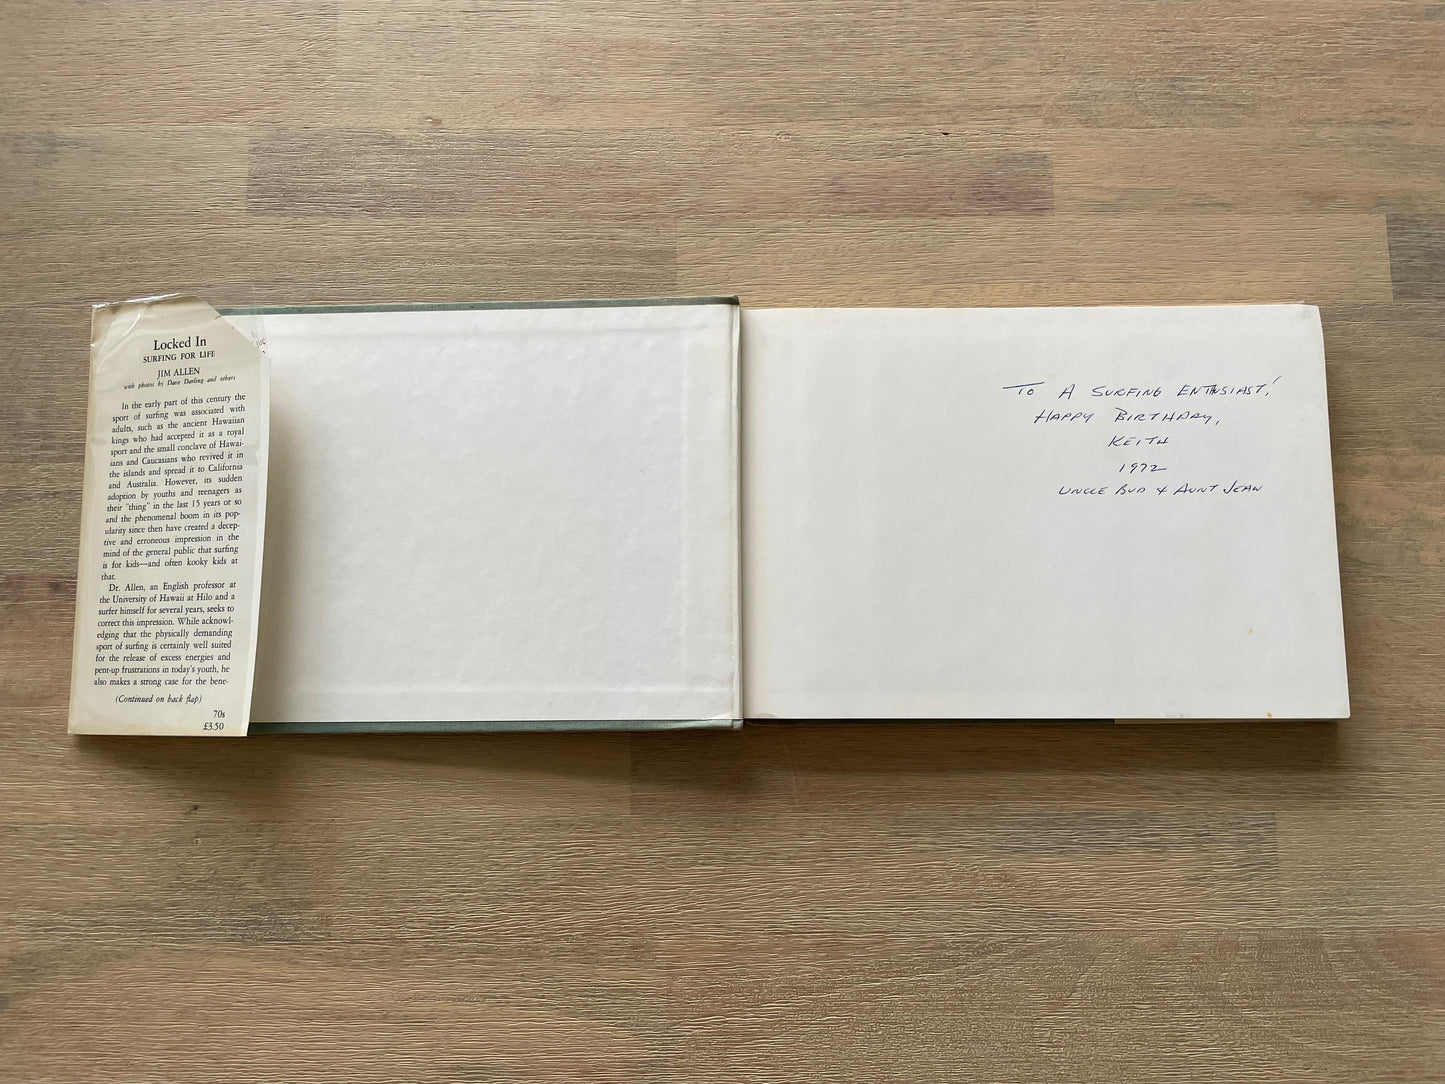 Locked In
SURFING FOR LIFE
JIM ALLEN
with photos by Dave Darling and others
In the early part of this century the
sport of surfing was associated with
adults, such as the ancient Hawaiian
kings who had accepted it as a royal
sport and the small conclave of Hawai-
ians and Caucasians who revived it in
the islands and spread it to California
and Australia. However, its sudden
adoption by youths and teenagers as
their "thing" in the last 15 years or so
and the phenomenal boom in its pop-
ularity since then have created a decep-
tive and erroneous impression in the
mind of the general public that surfing
is for kids—and often kooky kids at
that.
Dr. Allen, an English professor at
the University of Hawaii at Hilo and a
surfer himself for several years, seeks to
correct this impression. While acknowl-
edging that the physically demanding
sport of surfing is certainly well suited
for the release of excess energies and
pent-up frustrations in today's youth, he
also makes a strong case for the bene-
(Continued on back flap)
70s
£3.50
TO A SURFING ENTHUSIAST!
HAPPY BIRTHDAY,
KEITH
1972
UNCLE BUD & AUNT JEAN